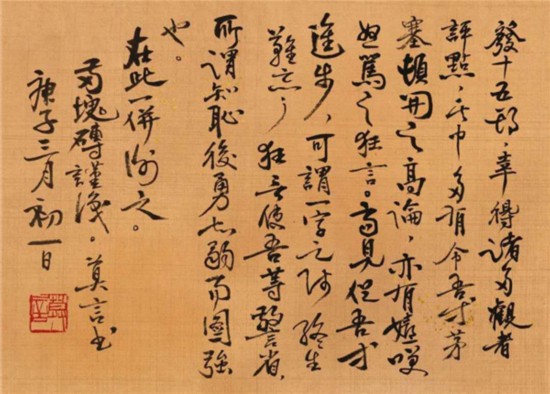 發十五部，幸得諸多觀者
評點，其中多有令吾等茅
塞頓開之高論，亦有嬉咲
怒罵之狂言。高見促吾等
進步，可謂一字之師終生
難忘；狂言使吾等警省，
所謂知恥後勇知弱而圖強
也。
在此一併謝之。
兩塊磚謹識。莫言书
庚子三月初一日